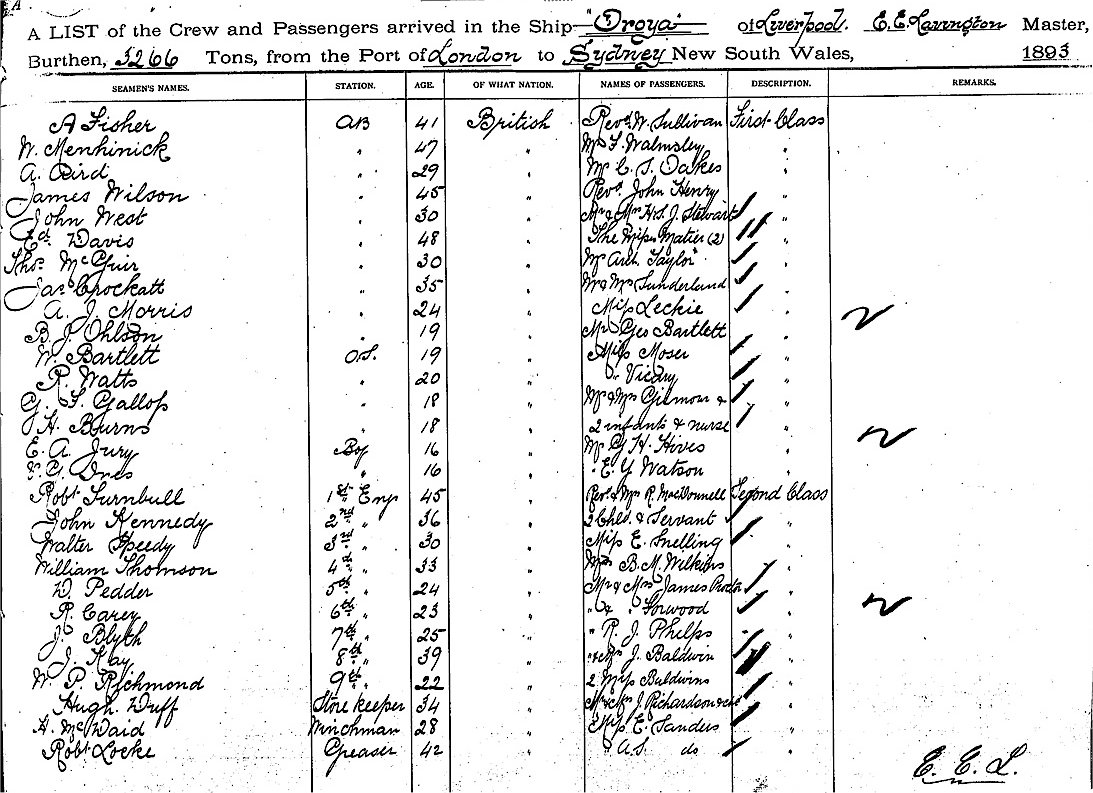 A LIST of the Crew and Passengers arrived in the Ship "Oroya" of Liverpool. E. E. Lavington Master,
Burthen, 3266 Tons, from the Port of London to Sydney New South Wales, 1893
SEAMEN'S NAMES. STATION. AGE. OF WHAT NATION. NAMES OF PASSENGERS. DESCRIPTION. REMARKS.
A Fisher AB 41 British Revd W. Sullivan First Class
W. Menhinick " 47 " Mr F. Walmsley "
A. Bird " 29 " Mr C. S. Oakes "
James Wilson " 45 " Revd John Henry "
John West " 30 " Mr & Mrs H. S. J. Stewart "
Ed. Davis " 48 " The Miss Matier (2) "
Thos McGuir " 30 " Mr Arth. Taylor "
Jas Crockatt " 35 " Mr & Mrs Sunderland "
A. J. Morris " 24 " Miss Leckie "
B. J. Ohlson " 19 " Mr Geo Bartlett "
W. Bartlett O.S. 19 " Miss Moser "
R. Watts " 20 " " Vicary "
G. F. Gallop " 18 " Mr & Mrs Gilmour & "
H. Burns " 18 " 2 infants & nurse "
E. A. Jury Boy 16 " Mr G. H. Hives "
" 16 " " E. Y. Watson "
Robt Turnbull 1st Eng 45 " Revd & Mrs R. MacDonnell Second Class
John Kennedy 2nd " 36 " 2 Chld. & Servant "
Walter Speedy 3rd " 30 " Miss E. Snelling "
William Thomson 4th " 33 " B. M. Wilkins "
D. Pedder 5th " 24 " Mr & Mrs James Proctor "
R. Carey 6th " 23 " " & " Forwood "
J. Blyth 7th " 25 " " R. J. Phelps "
J. Kay 8th " 39 " " & Mrs J. Baldwin "
W. P. Richmond 9th " 22 " 2 Miss Baldwins "
Hugh Duff Store keeper 34 " Mr & Mrs J. Richardson "
A. McDaid Winchman 28 " Miss E. Sanders "
Robt Locke Greaser 42 " " A. S. do "
E. E. L.